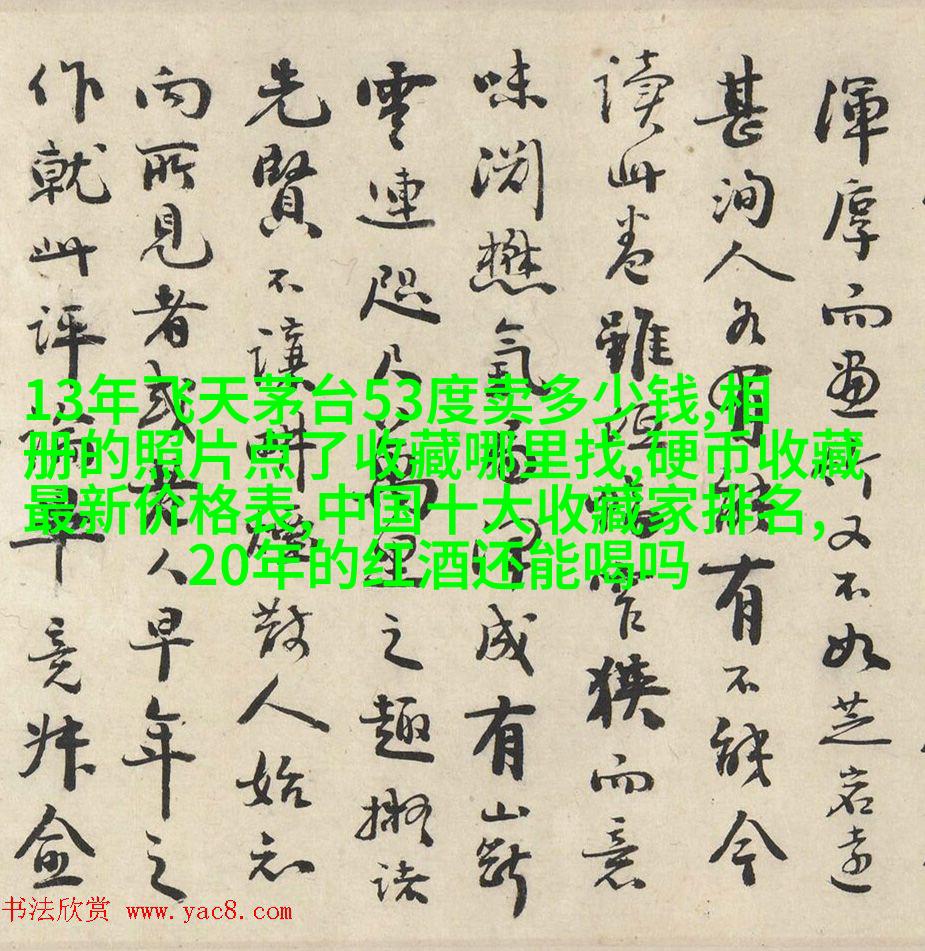 渾厚而畫所又不如芝岩遠
甚洵人各有能有不能今
讀此卷雖而意
味淵懋氣成有山斷
雲連咫尺萬里之趣擬諸
先賢不讓耕煙散人始知
向所見者或其人早年之
作就此評竟
13年飞天茅台53度卖多少钱,相
册的照片点了收藏哪里找,硬币收藏
最新价格表,中国十大收藏家排名,
20年的红酒还能喝吗
书法欣赏 www.yac8.com